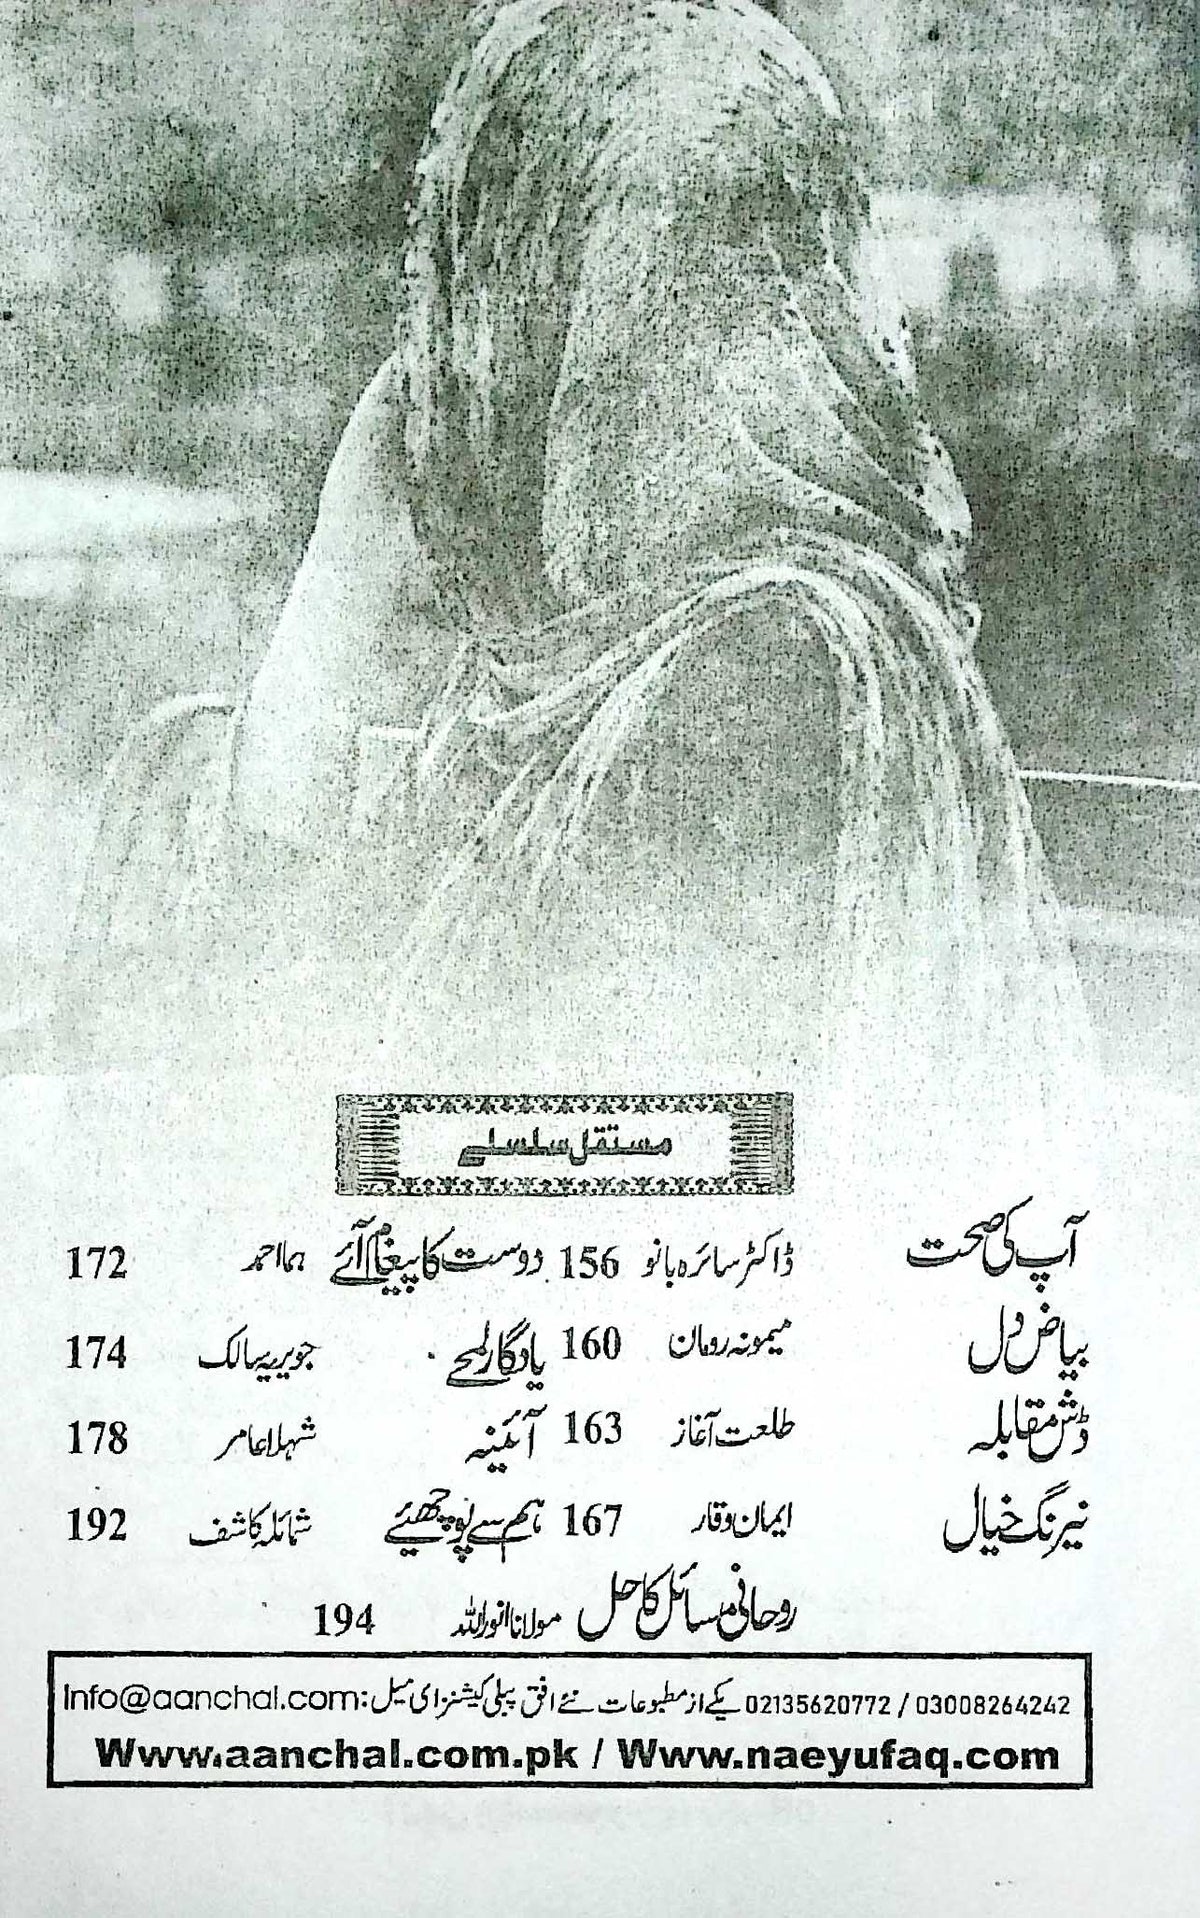 مستقل سلسلے
آپ کی صحت ڈاکٹر سائرہ بانو 156 دوست کا پیغام آئے ہما احمد 172
بیاض دل میمونہ رومان 160 یادگار لمحے جویریہ سالک 174
ڈش مقابلہ طلعت آغاز 163 آئینہ شہلا عامر 178
نیرنگ خیال ایمان وقار 167 ہم سے پوچھئے شمائلہ کاشف 192
روحانی مسائل کا حل مولانا انور اللہ 194
02135620772 / 03008264242 یکے از مطبوعات نئے افق پبلی کیشنز ای میل:Info@aanchal.com
Www.aanchal.com.pk / Www.naeyufaq.com